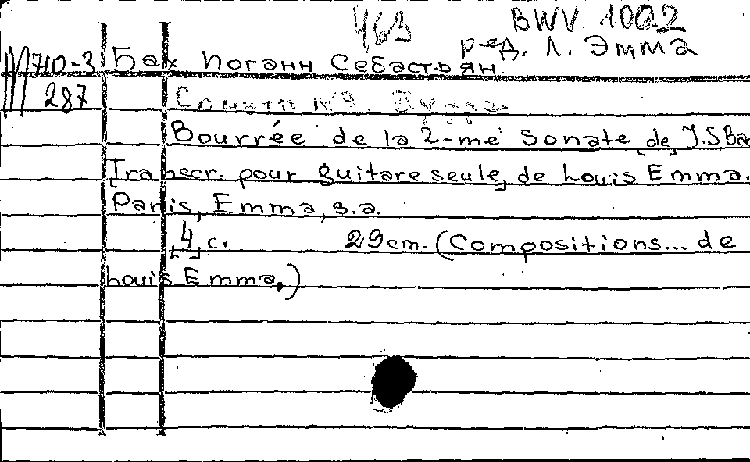 463 BWV 1002
ред. Л. Эмма
М710-3 Бах Иоганн Себастьян
287
Bourrée de la 2-me Sonate [de] J.S Bac
Transcr. pour guitare seule, de Louis Emma.
Paris, Emma, s.a.
[4] c. 29 cm. (Compositions... de
Louis Emma.)